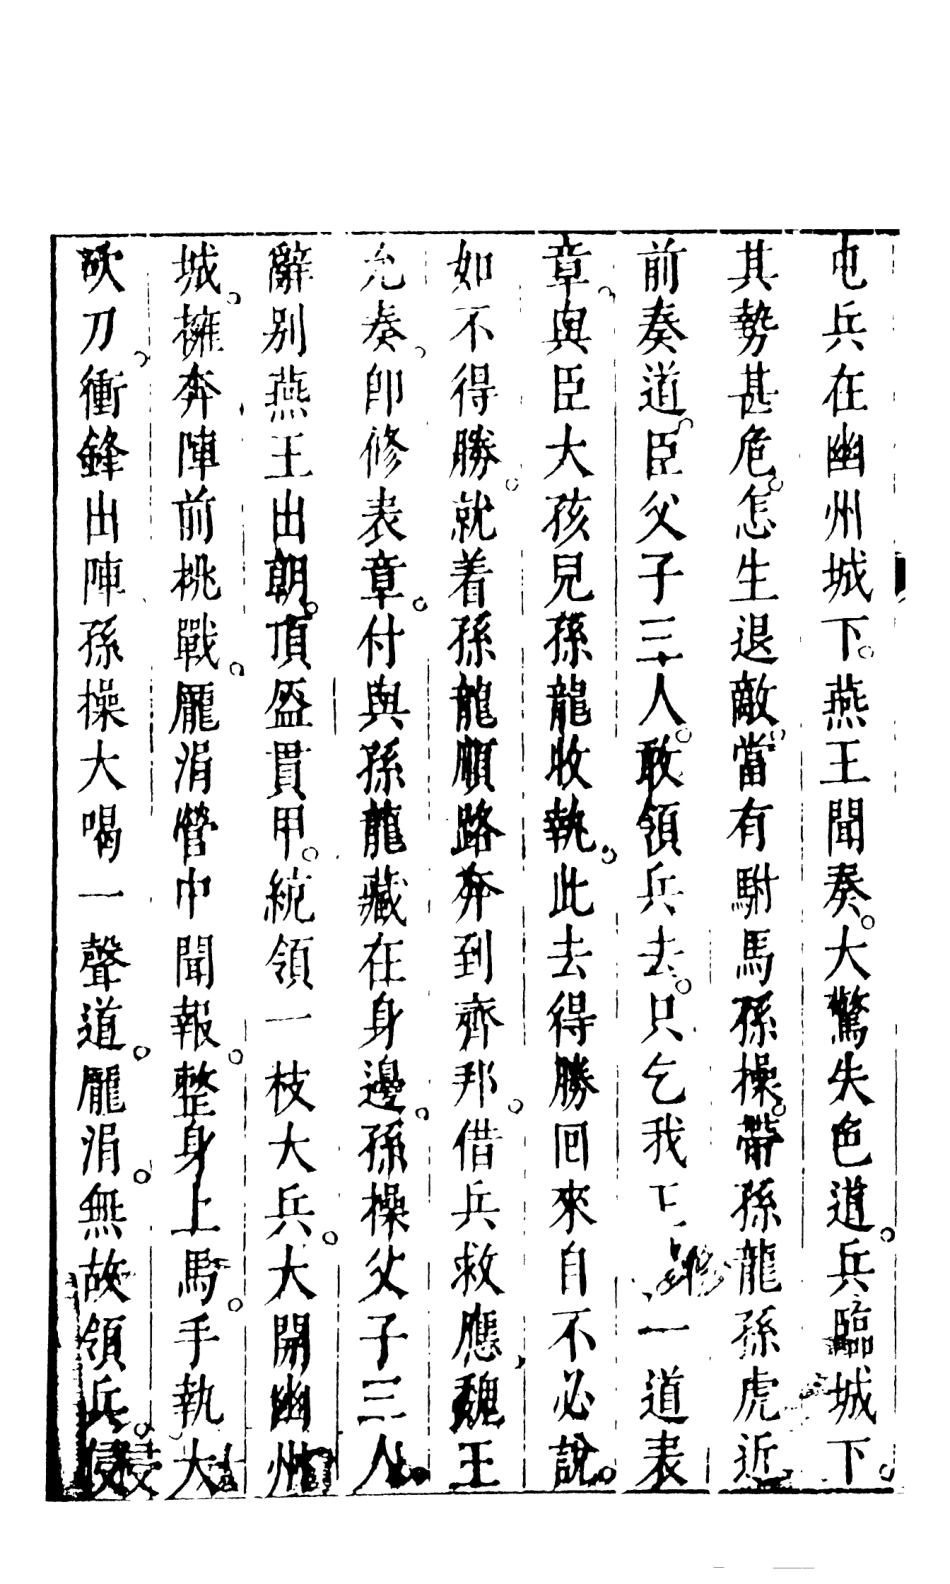 屯兵在幽州城下。燕王聞奏。大驚失色道。兵臨城下。
其勢甚危。怎生退敵。當有駙馬孫操。帶孫龍孫虎近
前奏道。臣父子三人。敢領兵去。只乞我王修一道表
章。與臣大孩兒孫龍收執。此去得勝回來自不必說。
如不得勝。就着孫龍順路奔到齊邦。借兵救應。魏王
允奏。卽修表章。付與孫龍藏在身邊。孫操父子三人
辭別燕王出朝。頂盔貫甲。統領一枝大兵。大開幽州
城。擁奔陣前挑戰。龐涓營中聞報。整身上馬。手執大
砍刀。衝鋒出陣孫操大喝一聲道。龐涓。無故領兵。侵